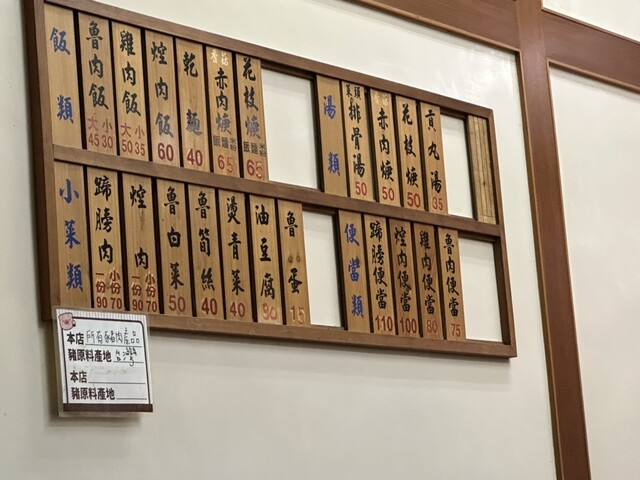 飯類
魯肉飯 大45 小30
雞肉飯 大50 小35
焢肉飯 60
乾麵 40
香菇赤肉焿 65
花枝焿 65
湯類
排骨湯 50
赤肉焿 50
花枝焿 50
貢丸湯 35
小菜類
蹄膀肉 一份90 小份70
焢肉 一份90 小份70
魯白菜 50
魯筍絲 40
燙青菜 40
油豆腐
魯蛋 15
便當類
蹄膀便當 110
焢肉便當 100
雞肉便當 80
魯肉便當 75
本店 所有豬肉產品
豬原料產地 台灣
本店
豬原料產地